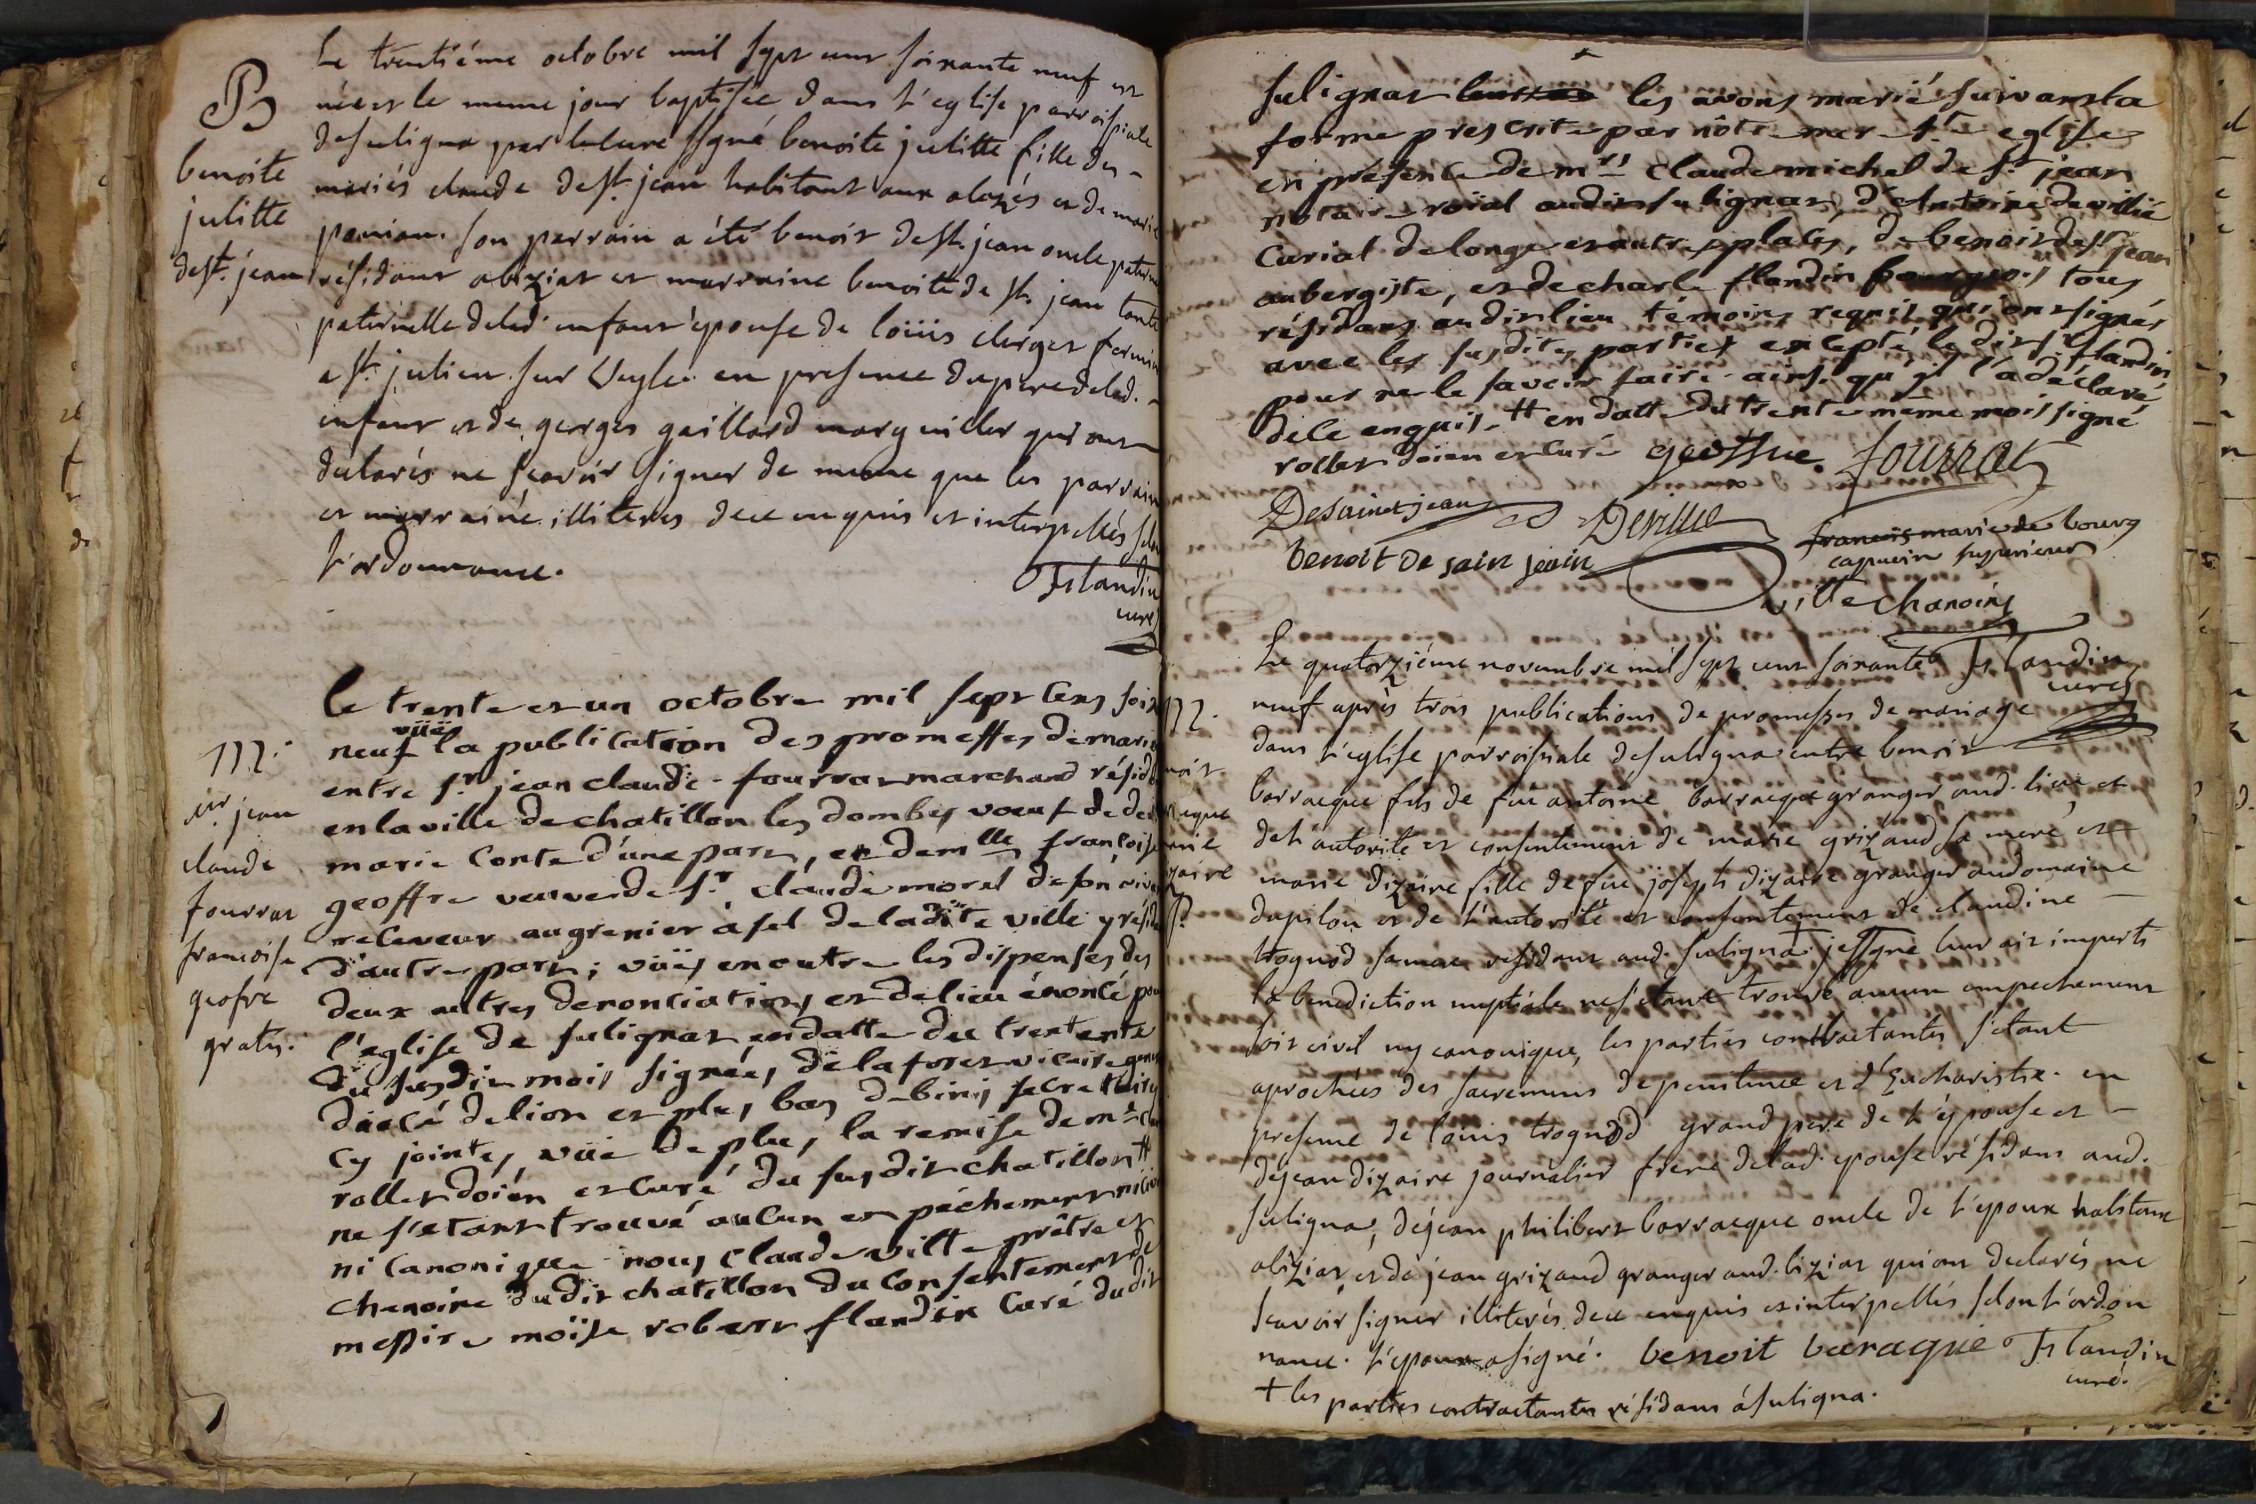 Le trentiéme octobre mil sept cent soixante neuf est
née et le meme jour baptisée dans l'eglise parroissiale
de suligna par le curé sgné benoite julitte fille des
mariés claude de st. jean habitant aux alozés et de marie
son parrain a été benoit de st. jean oncle paternel
résidant abiziat et marraine benoite de st. jean tante
paternelle de lad. enfant épouse de loüis clerget fermier
a st. julien sur Veyle. en presence du pere de lad.
enfant et de georges gaillard marguiller qui ont
declarés ne sçavoir signer de meme que les parrain
et marraine illiterés de ce enquis et interpellés selon
l'ordonnance.
flandin
curé
B
benoite
julitte
de st. jean
Le trente et un octobre mil sept cens soix
neuf vüe la publication des promesses de maria
entre sr. jean claude fourrat marchand résida
en la ville de chatillon les dombes voeuf de de
marie Conte d'une part, et demlle françoise
geoffre veuve de sr. claude morel de son viva
receveur au grenier à sel de la dite ville y résid
d'autre part; vües en outre les dispenses des
deux autres denonciations et de lieu énoncé pou
l'eglise de sulignat en datte du trentente
du susdit mois signées de la forest vicaire gener
diocé de lion et plus bas debinis secretaire
cy jointes, vüe de plus la remise de mre
rollet doïen et curé du susdit chatillon #
ne s'etant trouvé aucun enpéchement ni civi
ni canonique nous claude ville prêtre et
chenoine du dit chatillon du consentement de
messire moïse robert flandin curé du dit
m.
sr. jean
claude
fourrat
francoise
geofre
gratis.
sulignat les avons marié suivant la
forme prescrite par nôtre mere ste eglise
en présence de mrs claude michel de st. jean
notaire roïal au dit sulignat, d'Antoine deville
curial de longe et autres places, de benoit de st. jean
aubergiste, et de charle flandin bourgeois tous
résidans au dit lieu témoins requis qui ont signés
avec les susdites parties excepté le dit sr. flandin
pour ne le savoir faire ainsi qu'il l'a déclaré
de ce enquis. # en datte du trente même mois signé
rollet doïen et curé geoffre. fourrat
Desaintjean Deville francois marie de bourg
capucin superieur
benoit de sain jean
ville chanoine
flandin
curé
Le quatorziéme novembre mil sept cent soixante
neuf après trois publications de promesses de mariage
dans l'eglise parroissiale de suligna entre benoit
barracque fils de feu antoine barracque granger aud. lieu et
de l'autorité et consentement de marie grizaud sa mere, et
marie dizaire fille de feu joseph dizaire granger au domaine
dupilon et de l'autorité et consentement de claudine
trognod sa mere résidant aud. suligna + je sgné leur ait imparti
la benediction nuptiale ne s'étant trouvé aucun empechement
soit civil ny canonique, les parties contractantes s'etant
aprochées des sacremens de penitence et d'Eucharistie. en
presence de loüis trognod grand pere de l'épouse et
de jean dizaire journalier frere de lad. epouse résidans aud.
suligna, de jean philibert barracque oncle de l'époux habitant
abiziat, et de jean grizaud granger aud. biziat qui ont declarés ne
scavoir signer illiterés de ce enquis et interpellés selon l'ordon
nance. l'epoux a signé. benoit baraque flandin
curé.
+ les parties contractantes résidans à suligna.